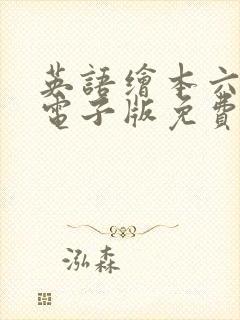 英語繪本六
電子版免費
泓森